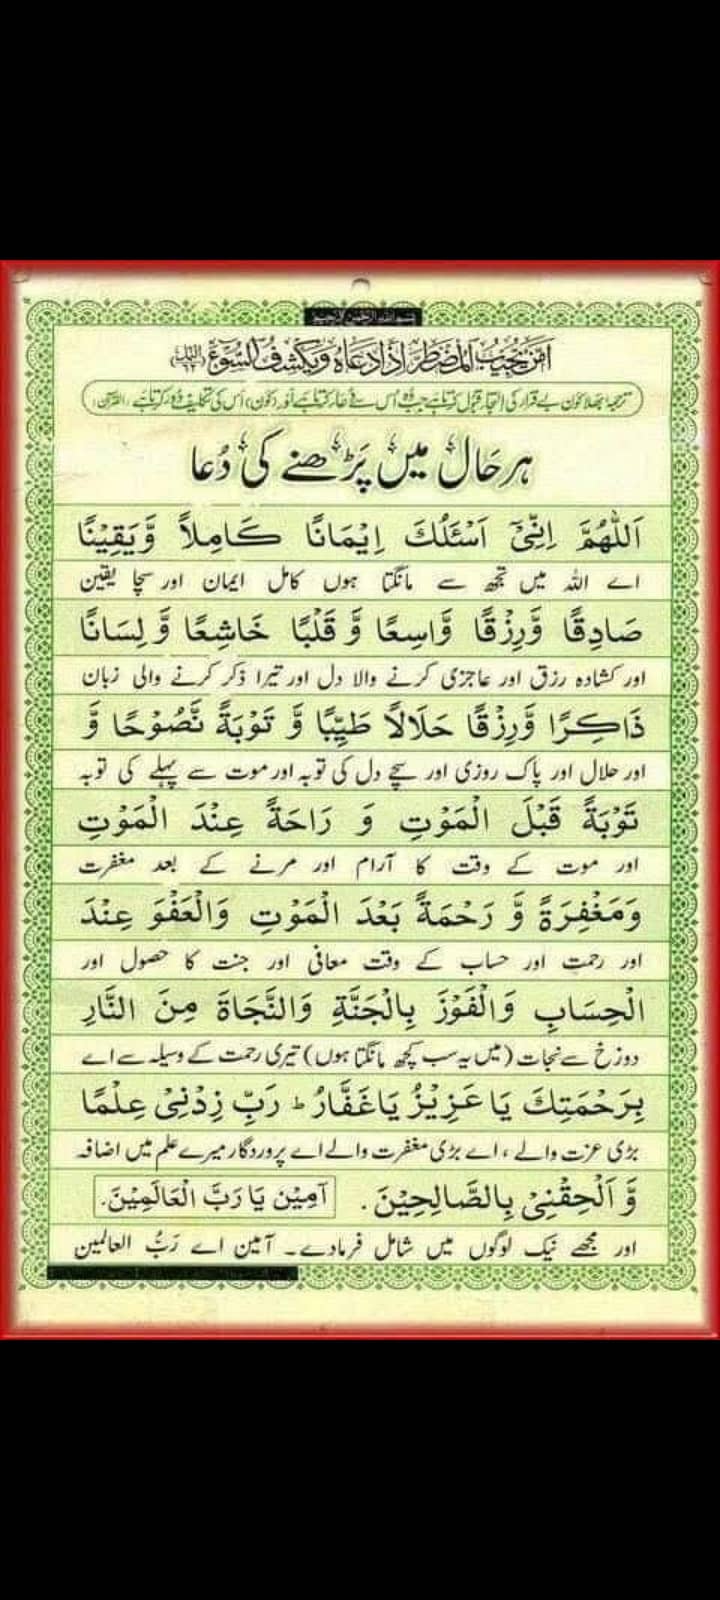 بسم اللہ الرحمن الرحیم
اَمَّنْ يُّجِيْبُ الْمُضْطَرَّ اِذَا دَعَاهُ وَيَكْشِفُ السُّوْٓءَ (النمل ٦٢)
ترجمہ: بھلا کون بے قرار کی التجا قبول کرتا ہے جب وہ اُس سے دُعا کرتا ہے اور (کون) اس کی تکلیف دُور کرتا ہے (القرآن)
ہر حَال میں پَڑھنے کی دُعا
اَللّٰهُمَّ اِنِّىْٓ اَسْئَلُكَ اِيْمَانًا كَامِلاً وَّيَقِيْنًا
اے اللہ میں تجھ سے مانگتا ہوں کامل ایمان اور سچا یقین
صَادِقًا وَّرِزْقًا وَّاسِعًا وَّ قَلْبًا خَاشِعًا وَّ لِسَانًا
اور کشادہ رزق اور عاجزی کرنے والا دل اور تیرا ذکر کرنے والی زبان
ذَاكِرًا وَّرِزْقًا حَلَالاً طَيِّبًا وَّ تَوْبَةً نَّصُوْحًا وَّ
اور حلال اور پاک روزی اور سچے دل کی توبہ اور موت سے پہلے کی توبہ
تَوْبَةً قَبْلَ الْمَوْتِ وَ رَاحَةً عِنْدَ الْمَوْتِ
اور موت کے وقت کا آرام اور مرنے کے بعد مغفرت
وَمَغْفِرَةً وَّ رَحْمَةً بَعْدَ الْمَوْتِ وَالْعَفْوَ عِنْدَ
اور رحمت اور حساب کے وقت معافی اور جنت کا حصول اور
الْحِسَابِ وَالْفَوْزَ بِالْجَنَّةِ وَالنَّجَاةَ مِنَ النَّارِ
دوزخ سے نجات (میں یہ سب کچھ مانگتا ہوں) تیری رحمت کے وسیلہ سے اے
بِرَحْمَتِكَ يَا عَزِيْزُ يَاغَفَّارُ ط رَبِّ زِدْنِىْ عِلْمًا
بڑی عزت والے، اے بڑی مغفرت والے اے پروردگار میرے علم میں اضافہ
وَّ اَلْحِقْنِىْ بِالصَّالِحِيْنَ. آمِيْن يَا رَبَّ الْعَالَمِيْنَ.
اور مجھے نیک لوگوں میں شامل فرمادے۔ آمین اے رَبُّ العالمین